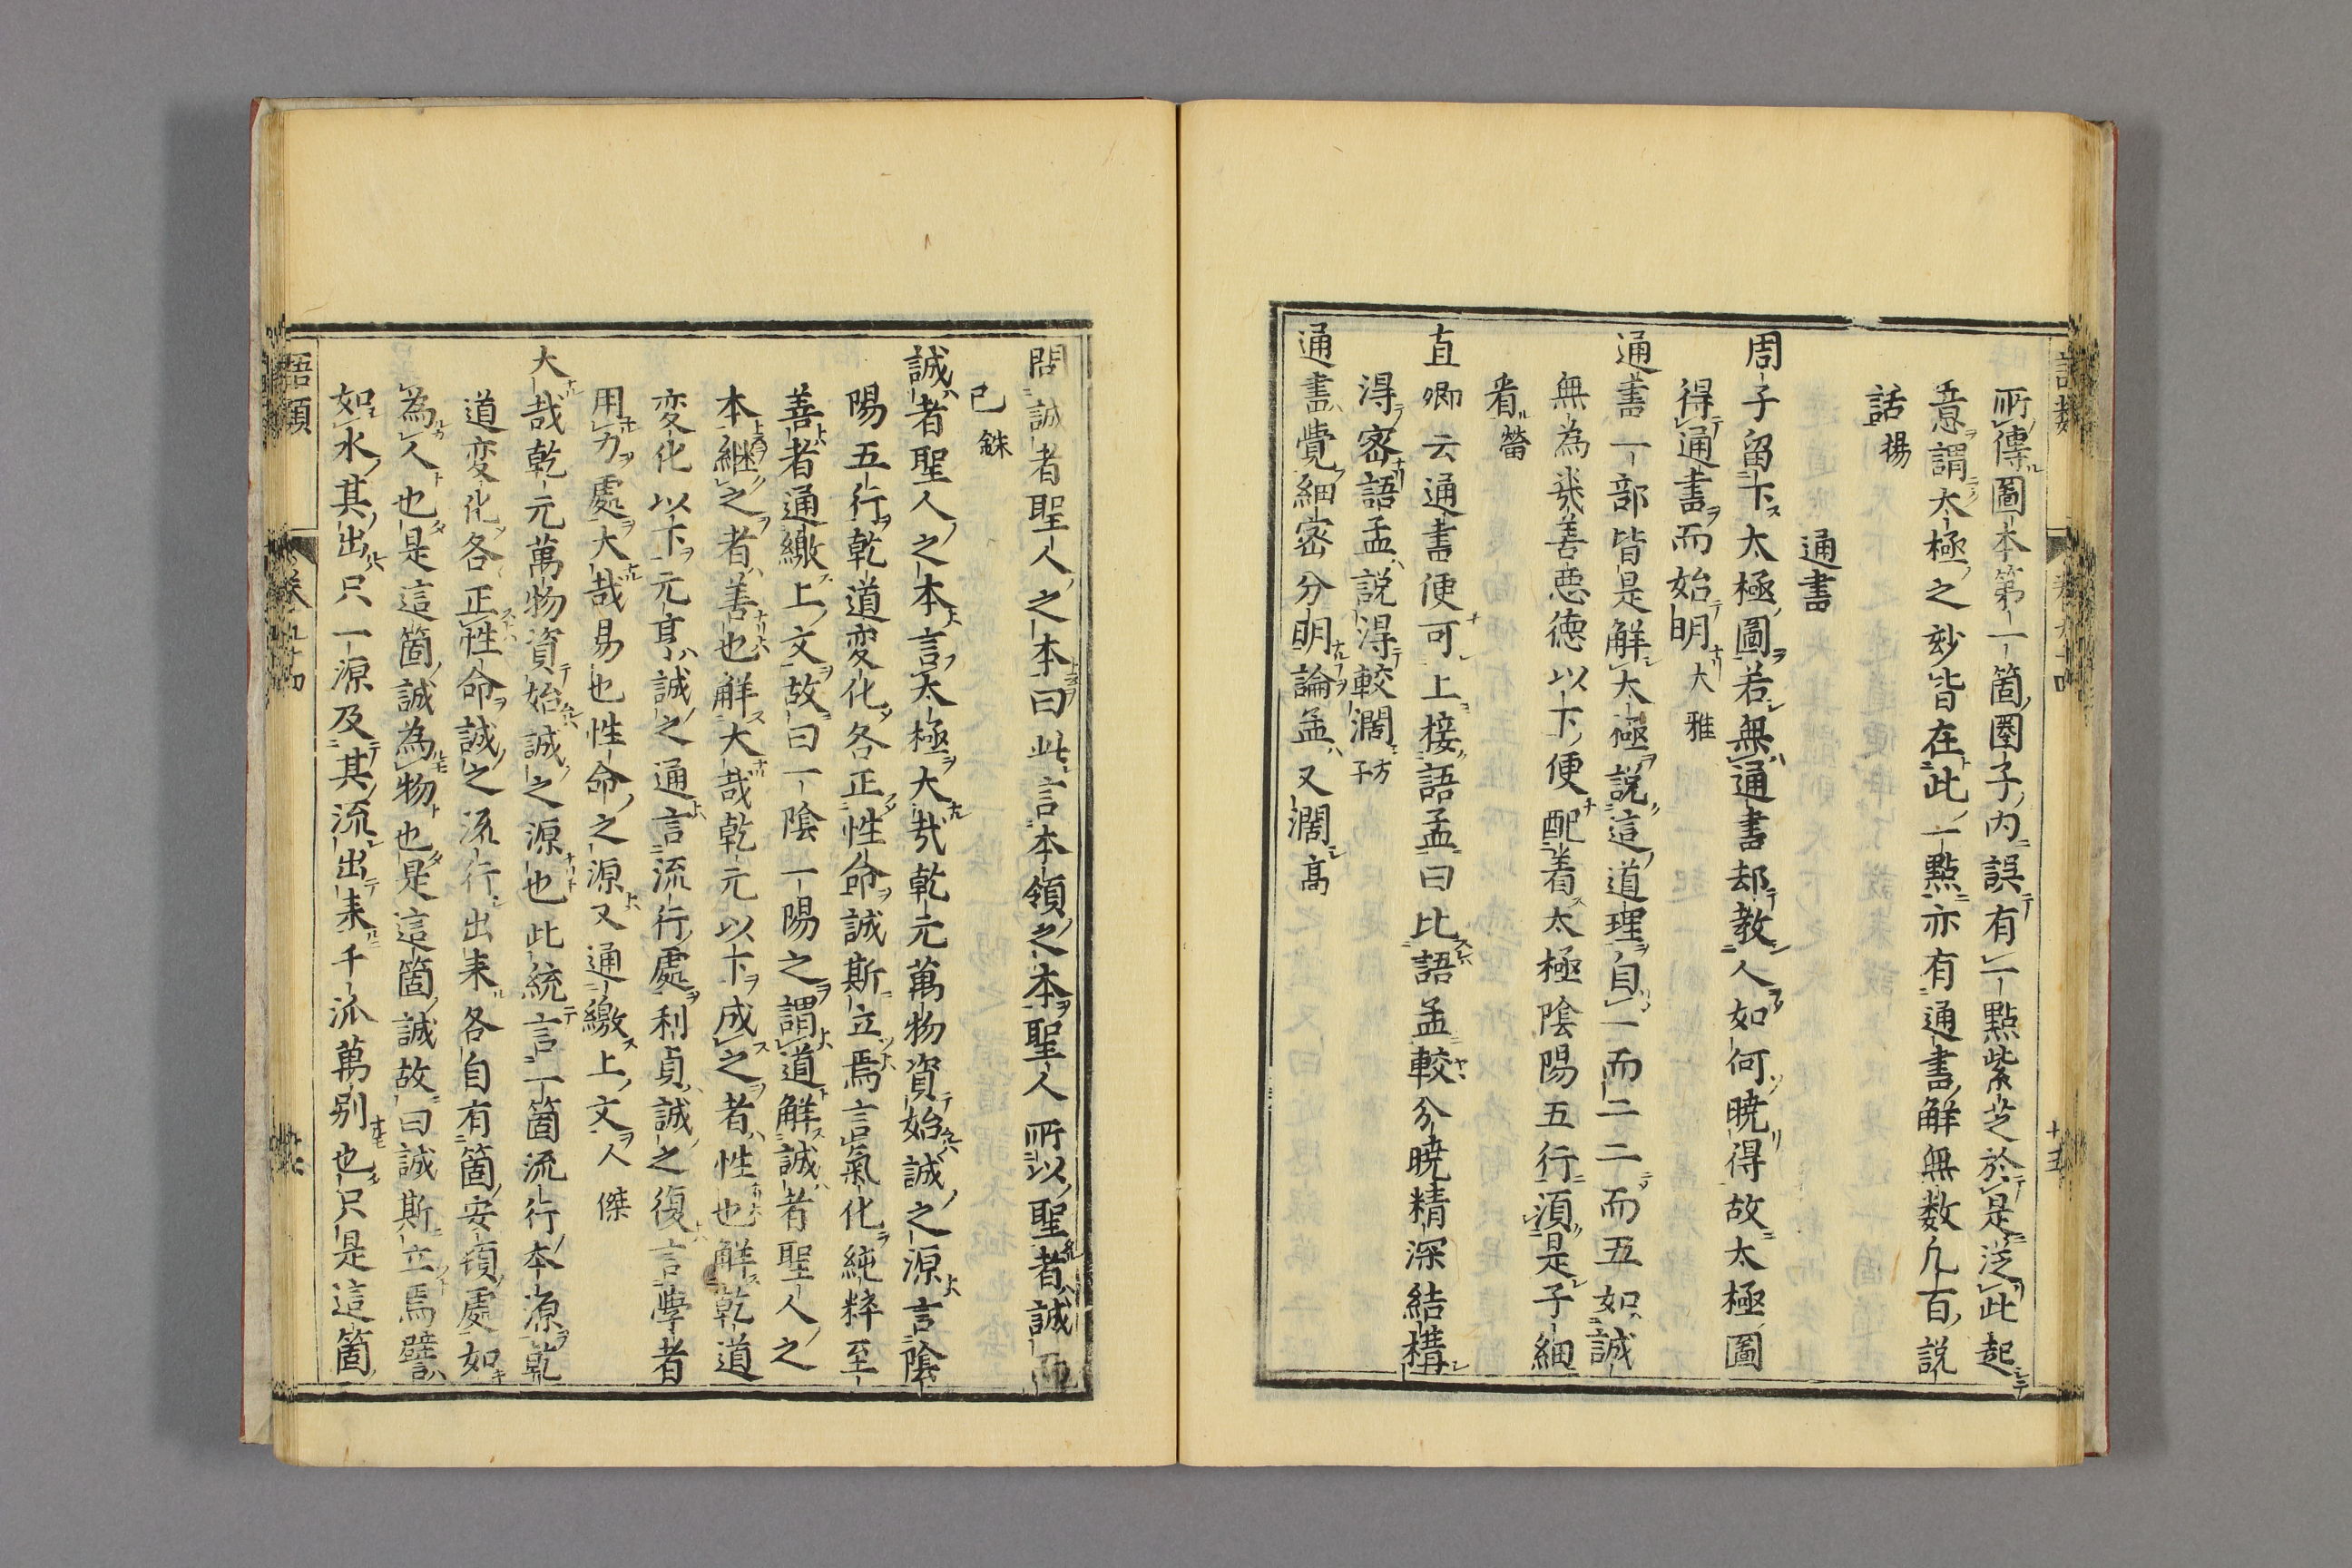 所傳圖本第一箇圏子内誤有一點紫芝於是泛此起
意謂太極之玅皆在此一點亦有通書觧無数凢百説
話揚
通書
周子留下太極圖若無通書却教人如何暁得故太極圖
得通書而始明大雅
通書一部皆是解太極説這道理自一而二二而五如誠
無為幾善悪德以下便配着太極陰陽五行湏是子細
看㽦
直卿云通書便可上接語孟曰比語孟較分暁精深結構
得密語孟説得較濶方子
通書覺細密分明論孟又濶高
問誠者聖人之本曰此言本領之本聖人所以聖者誠而
已銖
誠者聖人之本言太極大哉乾元萬物資始誠之源言陰
陽五行乾道変化各正性命誠斯立焉言氣化純粹至
善者通繳上文故曰一陰一陽之謂道解誠者聖人之
本継之者善也解大哉乾元以下成之者性也解乾道
変化以下元亨誠之通言流行處利貞誠之復言學者
用力處大哉易也性命之源又通繳上文人傑
大哉乾元萬物資始誠之源也此統言一箇流行本源乾
道変化各正性命誠之流行出来各自有箇安頓處如
為人也是這箇誠為物也是這箇誠故曰誠斯立焉譬
如水其出只一源及其流出来千派萬别也只是這箇